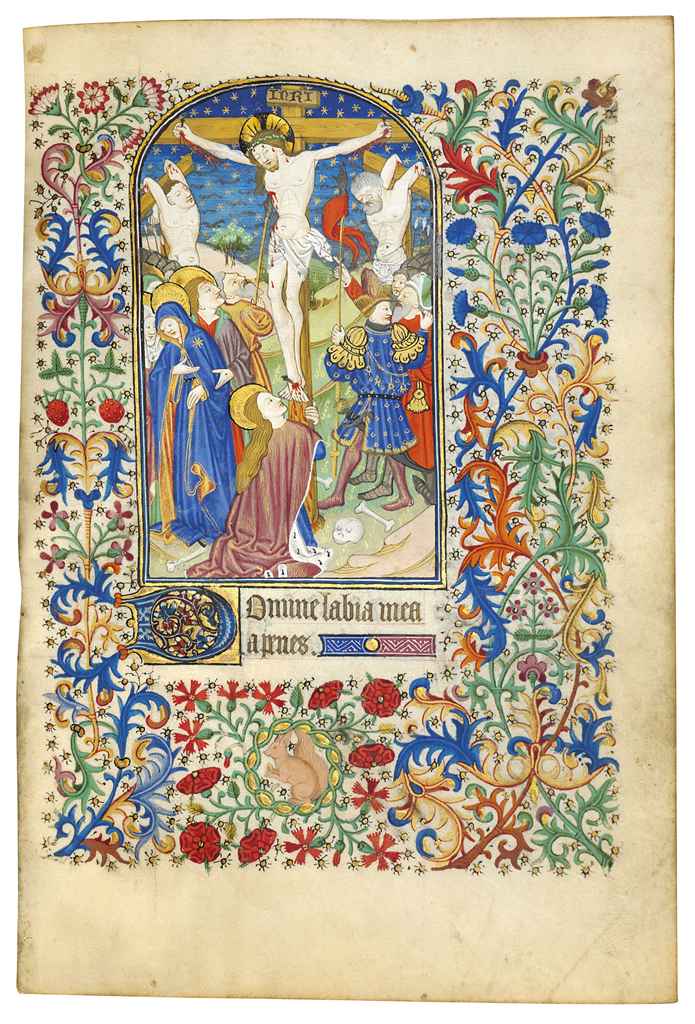 INRI
Domine labia mea
apries.